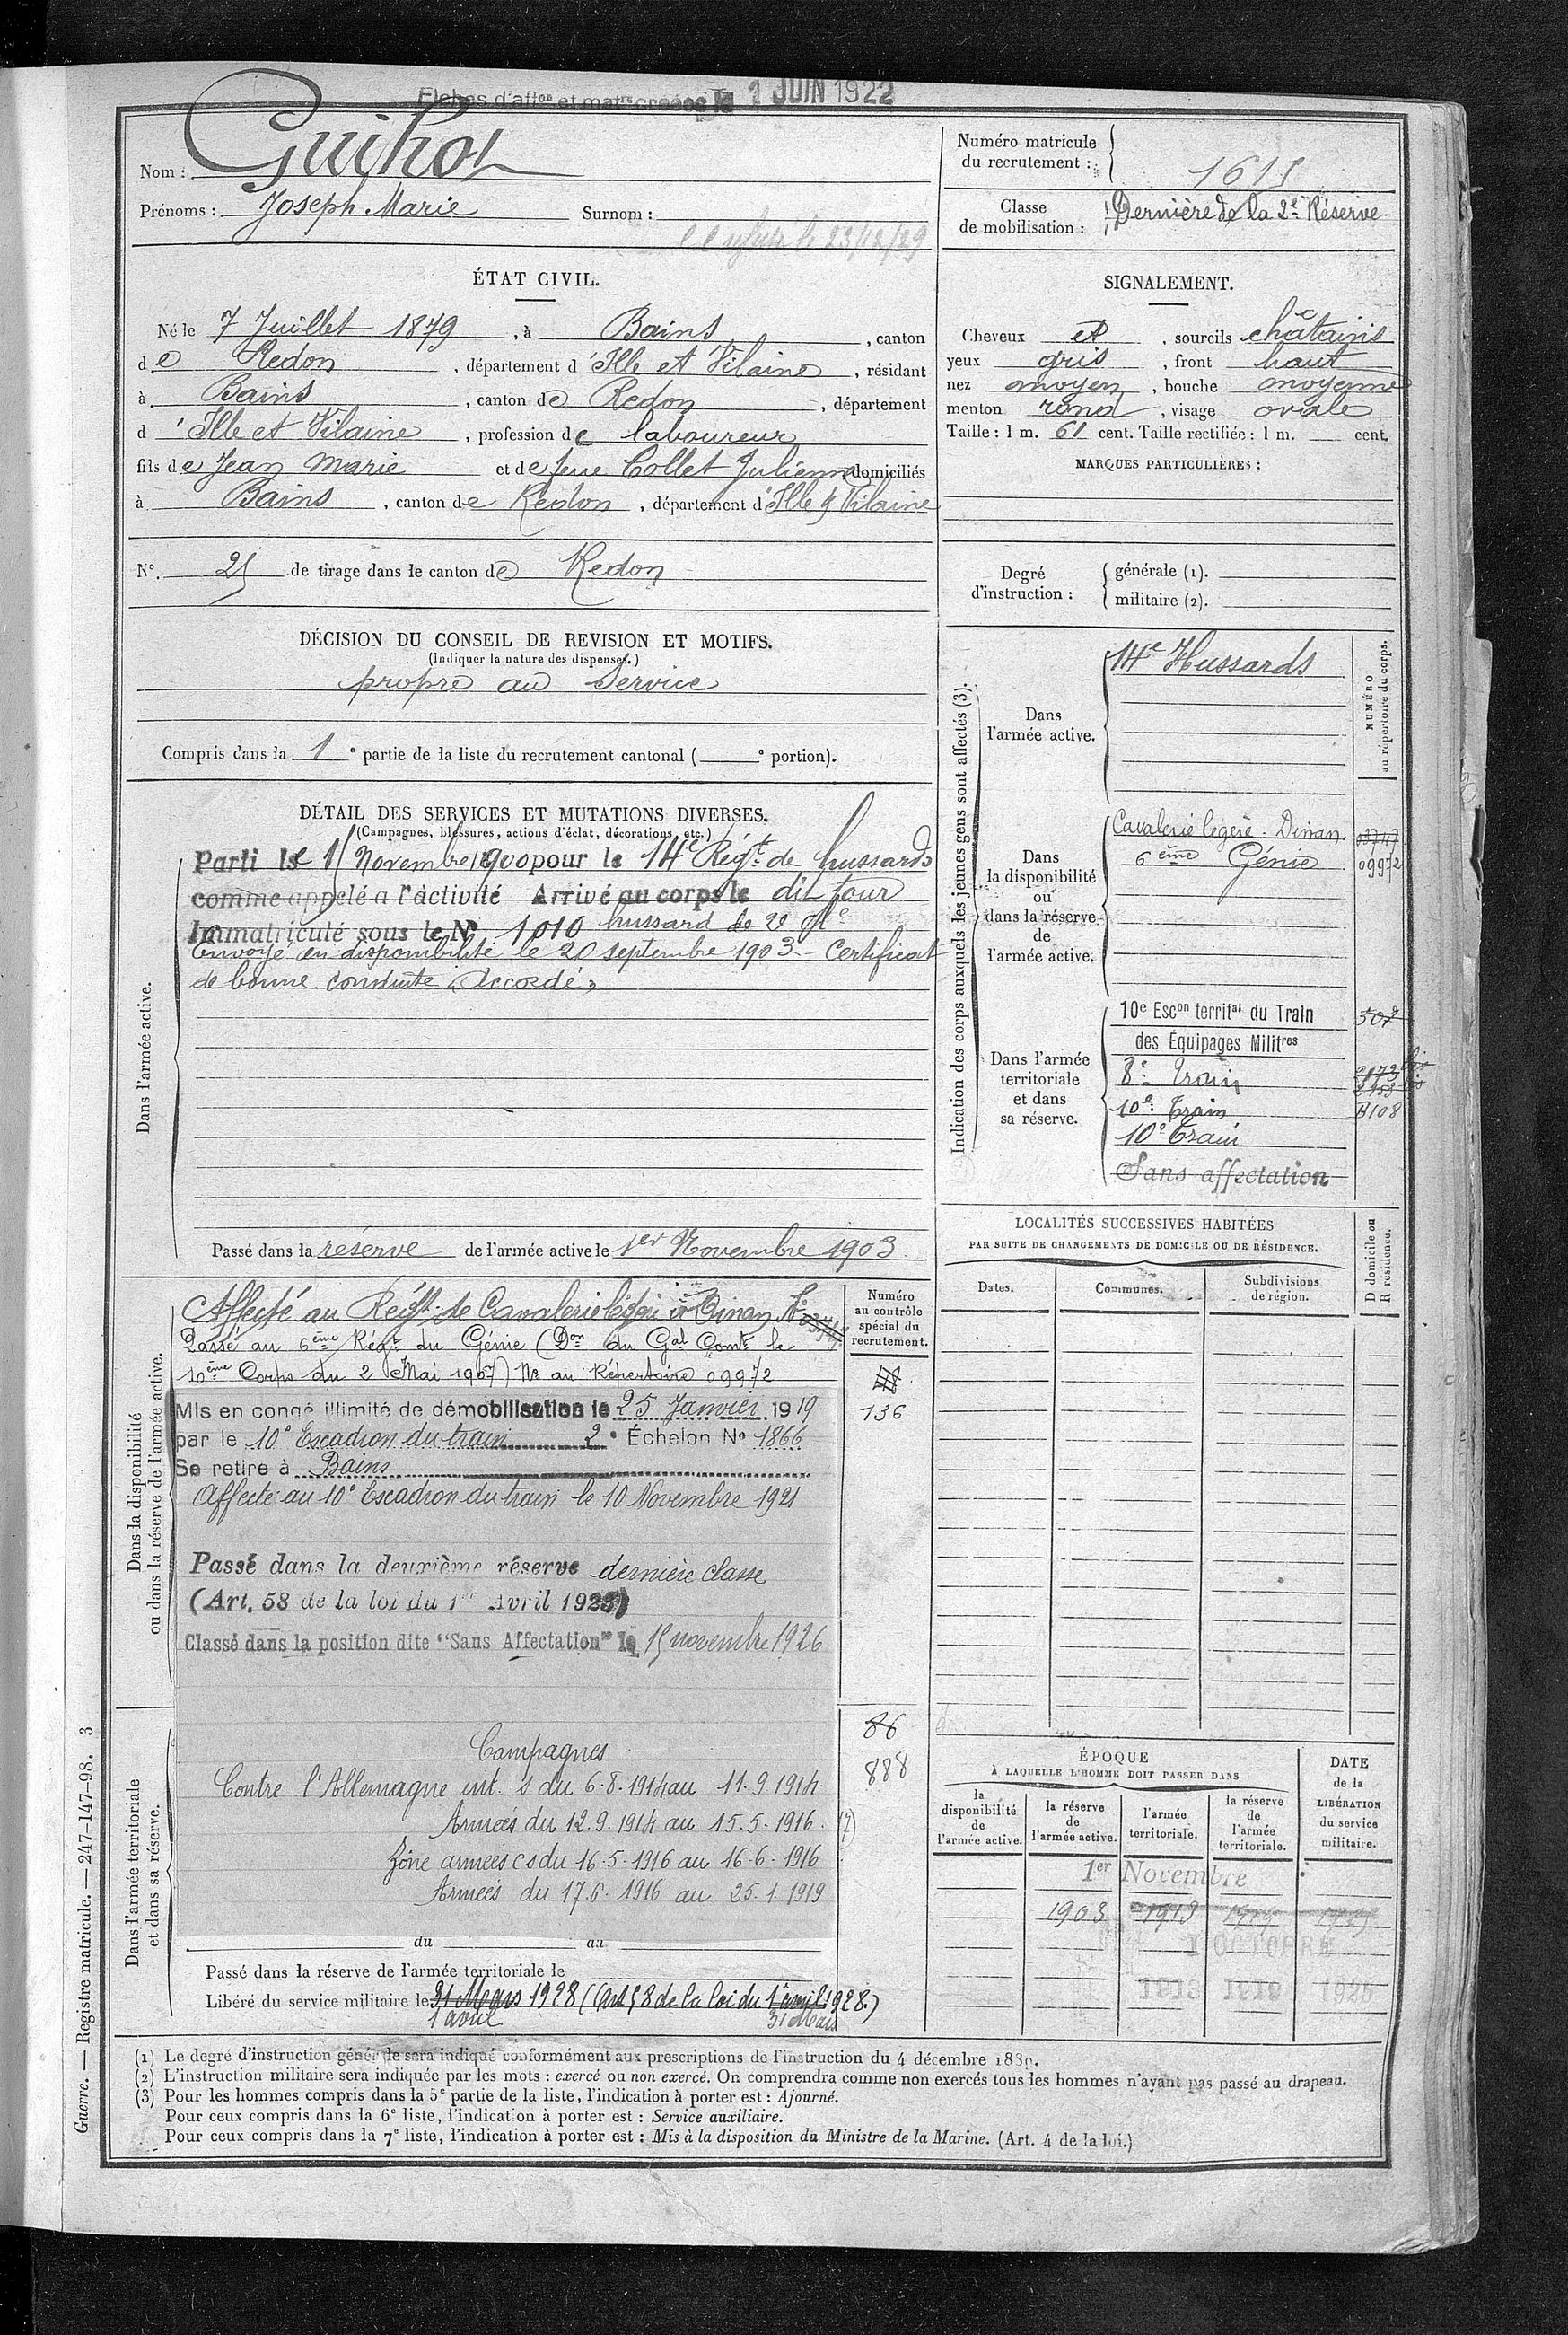 Fiches d'affon et matre créées le 1 JUIN 1922
Nom : Guihot
Prénoms : Joseph Marie Surnom :
le 23/12/29
ÉTAT CIVIL.
Né le 7 Juillet 1879, à Bains, canton
de Redon, département d'Ille et Vilaine, résidant
à Bains, canton de Redon, département
d'Ille et Vilaine, profession de laboureur
fils de Jean Marie et de feue Collet Julienne domiciliés
à Bains, canton de Redon, département d'Ille & Vilaine
N°. 25 de tirage dans le canton de Redon
DÉCISION DU CONSEIL DE REVISION ET MOTIFS.
(Indiquer la nature des dispenses.)
propre au Service
Compris dans la 1e partie de la liste du recrutement cantonal ( e portion).
DÉTAIL DES SERVICES ET MUTATIONS DIVERSES.
(Campagnes, blessures, actions d'éclat, décorations, etc.)
Dans l'armée active.
Parti le 15 Novembre 1900 pour le 14e Régt de hussards
comme appelé a l'activité Arrivé au corps le dit jour
Immatriculé sous le No 1010 hussard de 2e cl
Envoyé en disponibilité le 20 septembre 1903 - Certificat
de bonne conduite "Accordé"
Passé dans la réserve de l'armée active le 1er Novembre 1903
Dans la disponibilité
ou dans la réserve de l'armée active.
Affecté au Régt de Cavalerie légère de Dinan No 03747
Passé au 6ème Régt du Génie (Don du Gal Comt le
10ème Corps du 2 Mai 1907) No au Répertoire 09972
Mis en congé illimité de démobilisation le 25 Janvier 1919
par le 10e Escadron du train 2e Échelon No 1866
Se retire à Bains
Affecté au 10e Escadron du train le 10 Novembre 1921
Passé dans la deuxième réserve dernière classe
(Art. 58 de la loi du 1er Avril 1923)
Classé dans la position dite "Sans Affectation" le 15 novembre 1926
Numéro
au contrôle
spécial du
recrutement.
136
86
888
Dans l'armée territoriale
et dans sa réserve.
Campagnes
Contre l'Allemagne int. s du 6.8.1914 au 11.9.1914
Armées du 12.9.1914 au 15.5.1916
Zône armées cs du 16.5.1916 au 16.6.1916
Armées du 17.6.1916 au 25.1.1919
du au
Passé dans la réserve de l'armée territoriale le
Libéré du service militaire le 31 Mars 1928 (Art 58 de la loi du 1er avril 1928.)
1 avril 31 Mars
Numéro matricule
du recrutement : 1615
Classe
de mobilisation : Dernière de la 2e Réserve.
SIGNALEMENT.
Cheveux et, sourcils châtains
yeux gris, front haut
nez moyen, bouche moyenne
menton rond, visage ovale
Taille : 1 m. 61 cent. Taille rectifiée : 1 m. cent.
MARQUES PARTICULIÈRES :
Degré
d'instruction :
générale (1).
militaire (2).
Indication des corps auxquels les jeunes gens sont affectés (3).
NUMÉRO
au répertoire du corps.
Dans
l'armée active.
14e Hussards
Dans
la disponibilité
ou
dans la réserve
de
l'armée active.
Cavalerie légère - Dinan. 03747
6ème Génie 09972
Dans l'armée
territoriale
et dans
sa réserve.
10e Escon territal du Train 507
des Équipages Militres
8e Train
10e Train B108
10e Train
Sans affectation
LOCALITÉS SUCCESSIVES HABITÉES
PAR SUITE DE CHANGEMENTS DE DOMICILE OU DE RÉSIDENCE.
Dates. Communes. Subdivisions
de région.
D domicile ou
R résidence.
ÉPOQUE
À LAQUELLE L'HOMME DOIT PASSER DANS
la
disponibilité
de
l'armée active.
la réserve
de
l'armée active.
l'armée
territoriale.
la réserve
de
l'armée
territoriale.
DATE
de la
LIBÉRATION
du service
militaire.
1er Novembre
1903 1913 1919 1925
1 OCTOBRE
1913 1919 1925
(1) Le degré d'instruction générale sera indiqué conformément aux prescriptions de l'instruction du 4 décembre 1889.
(2) L'instruction militaire sera indiquée par les mots : exercé ou non exercé. On comprendra comme non exercés tous les hommes n'ayant pas passé au drapeau.
(3) Pour les hommes compris dans la 5e partie de la liste, l'indication à porter est : Ajourné.
Pour ceux compris dans la 6e liste, l'indication à porter est : Service auxiliaire.
Pour ceux compris dans la 7e liste, l'indication à porter est : Mis à la disposition du Ministre de la Marine. (Art. 4 de la loi.)
Guerre. — Registre matricule. — 247-147-98. 3